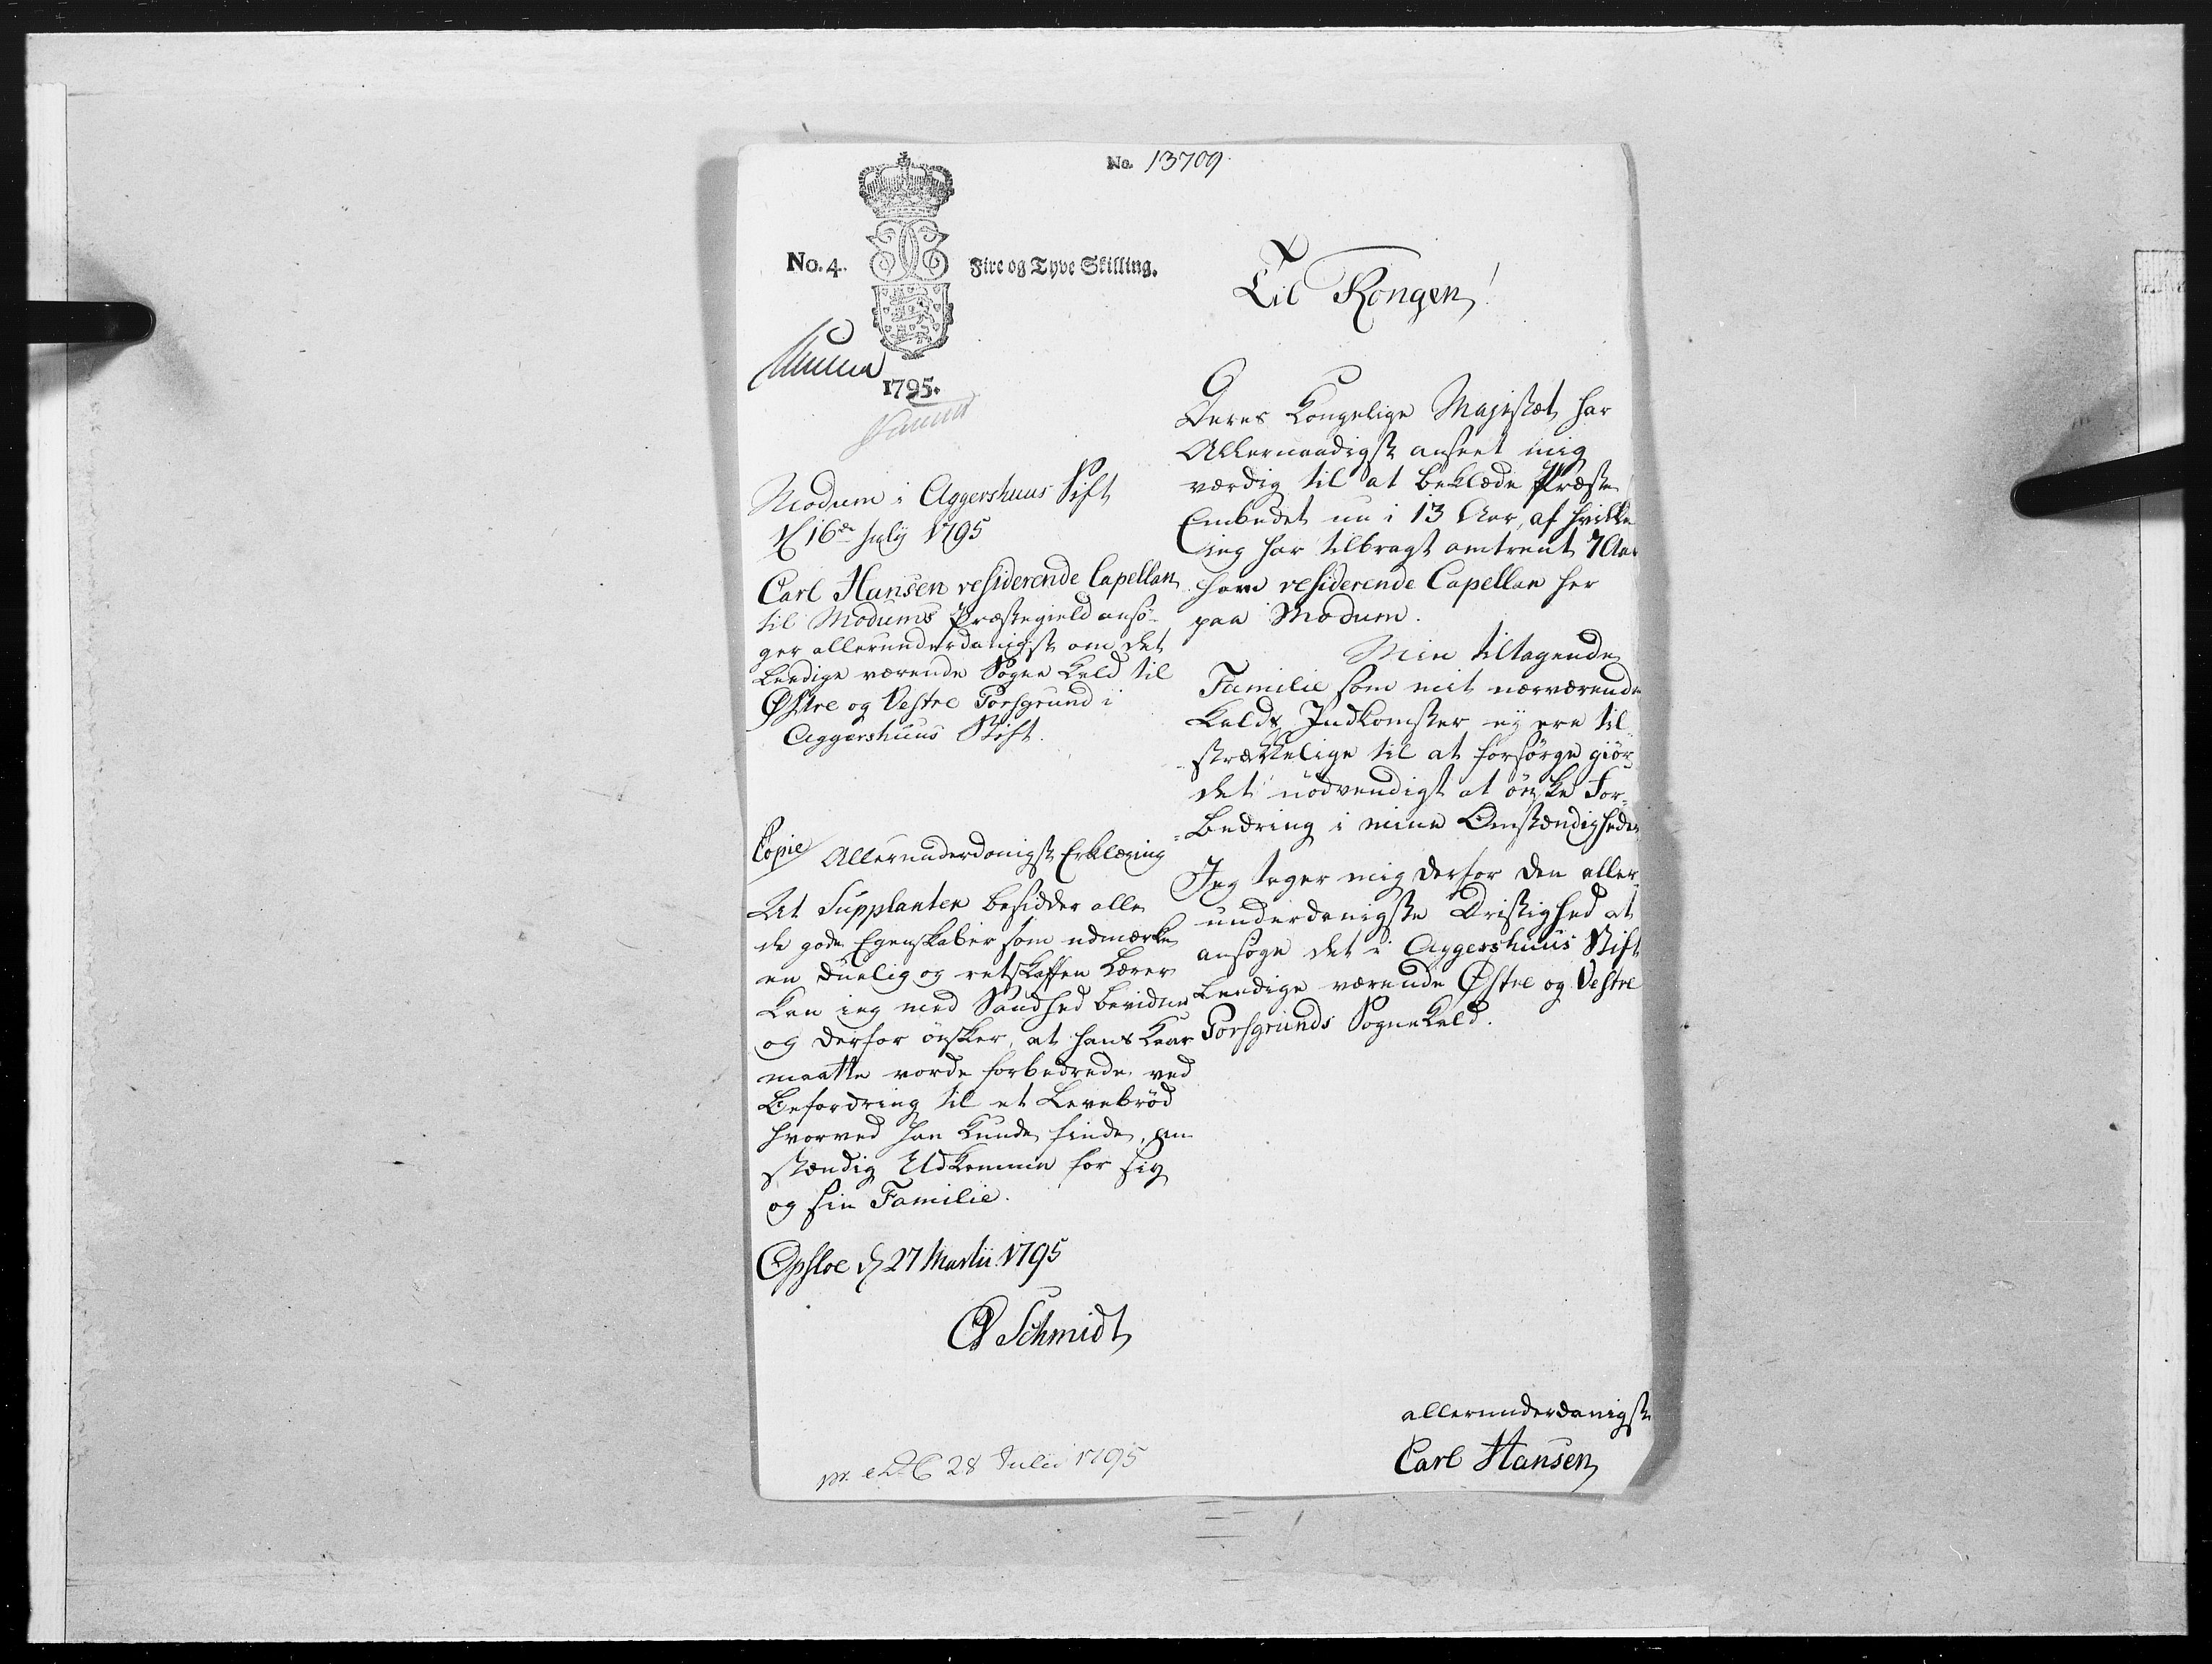 No. 13709.
No. 4.
Fire og Tyve Skilling.
1795.
Modum i Aggershuus Stift
d 16de July 1795
Carl Hansen residerende Capellan
til Modums Præstegield ansø-
ger allerunderdanigst om det
ledige værende Sogne Kald til
Østre og Vestre Porsgrund i
Aggershuus Stift.
Copie Allerunderdanigst Erklæring
At Supplanten besidder alle
de gode Egenskaber som udmærke
en duelig og retskaffen Lærer
kan ieg med Sandhed bevidne
og derfor ønsker, at hans Kaar
maatte vorde forbedrede ved
Befordring til et Levebrød
hvorved han kunde finde an-
stændig Udkomme for sig
og sin Familie.
Opsloe d 27 Martii 1795
Schmidt
28 Julii 1795
Til Kongen!
Deres Kongelige Majestæt har
Allernaadigst anseet mig
værdig til at beklæde Præste
Embedet nu i 13 Aar, af hvilke
ieg har tilbragt omtrent 7 Aar
som residerende Capellan her
paa Modum.
Min tiltagende
Familie som mit nærværende
Kalds Indkomster ej ere til-
strækkelige til at forsørge giør
det nødvendigt at ønske For-
bedring i mine Omstændigheder
Jeg tager mig derfor den aller-
underdanigste Dristighed at
ansøge det i Aggershuus Stift
ledige værende Østre og Vestre
Porsgrunds Sognekald.
allerunderdanigst
Carl Hansen